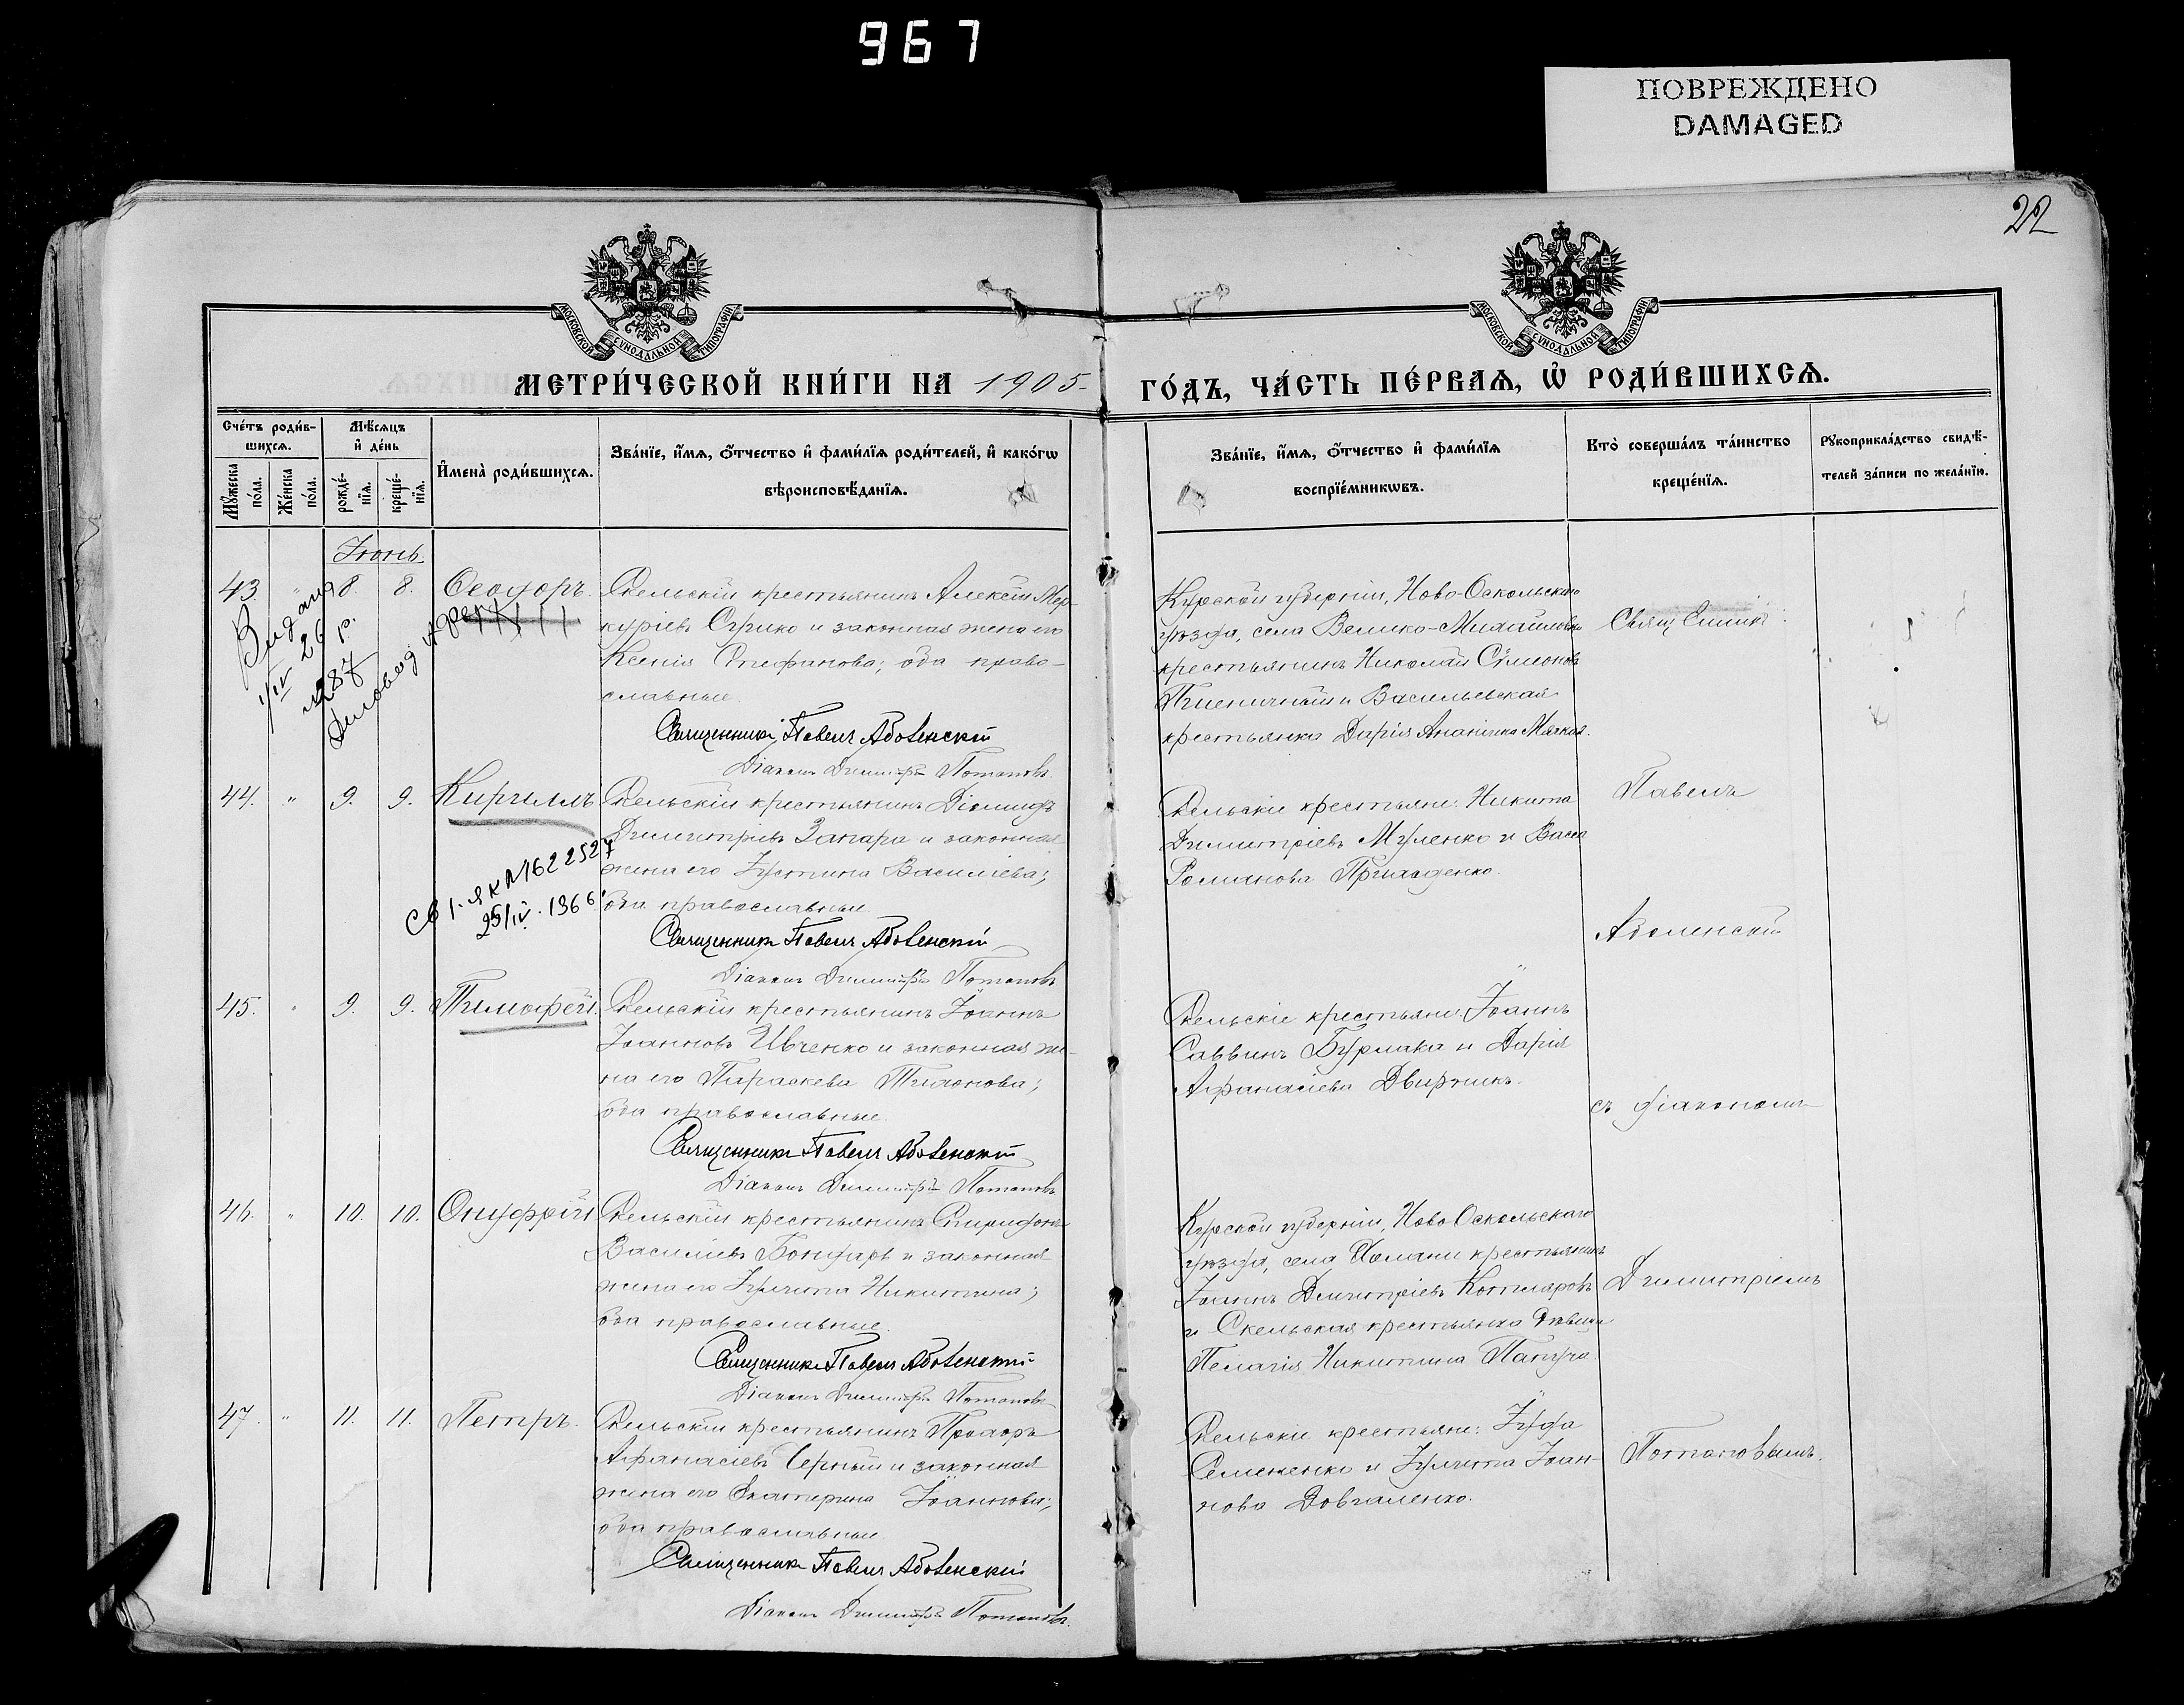 967
ПОВРЕЖДЕНО
DAMAGED
22
МОСКОВСКОЙ СѴНОДАЛЬНОЙ ТИПОГРАФІИ
МОСКОВСКОЙ СѴНОДАЛЬНОЙ ТИПОГРАФІИ
МЕТРИ́ЧЕСКОЙ КНИ́ГИ НА 1905
ГО́ДЪ, ЧА́СТЬ ПЕ́РВАѦ, Ѽ РОДИ́ВШИХСѦ.
Сче́тъ роди́в-
шихсѧ.
Мꙋжеска по́ла.
Же́нска по́ла.
Мѣ́сѧцъ
и҆ де́нь
рожде́-
нїѧ.
креще́-
нїѧ.
И҆мена̀ роди́вшихсѧ.
Зва́нїе, и҆́мѧ, ѻ҆́тчество и҆ фами́лїѧ роди́телей, и҆ како́гѡ
вѣроисповѣ́данїѧ.
Зва́нїе, и҆́мѧ, ѻ҆́тчество и҆ фами́лїѧ
воспрїе́мникѡвъ.
Кто̀ соверша́лъ та́инство
креще́нїѧ.
Рꙋкоприкла́дство свидѣ́-
телей за́писи по жела́нїю.
Іюнь.
43. " 8. 8. Ѳеодоръ.
Скельскій крестьянинъ Алексій Мер-
куріевъ Сѣрико и законная жена его
Ксенія Стефанова; оба право-
славные
Священникъ Павелъ Аболенскій
Діаконъ Димитрій Потаповъ.
Видано
1/IV 26 р.
№ 87
Курской губерніи, Ново-Оскольскаго
уѣзда, села Велико-Михайловки
крестьянинъ Николай Сѵмеоновъ
Пшеничный и Васильевская
крестьянка Дарія Ананіина Мягкая.
Священникъ
44. " 9. 9. Кириллъ
Скельскій крестьянинъ Діомидъ
Димитріевъ Запара и законная
жена его Іустина Василіева;
оба православные
Священникъ Павелъ Аболенскій
Діаконъ Димитрій Потаповъ
Св I-ЯК №1622527
25/IV. 1966
Скельскіе крестьяне: Никита
Димитріевъ Муленко и Васса
Романова
Павелъ
Аболенскій
45. " 9. 9. Тимофей.
Скельскій крестьянинъ Іоаннъ
Іоанновъ Ивченко и законная же-
на его Параскева Тихонова;
оба православные
Священникъ Павелъ Аболенскій
Діаконъ Димитрій Потаповъ
Скельскіе крестьяне: Іоаннъ
Саввинъ Бурлака и Дарія
Афанасіева Двирникъ.
съ діакономъ
46. " 10. 10. Онуфрій
Скельскій крестьянинъ Спиридонъ
Василіевъ Бондарь и законная
жена его Іулитта Никитина;
оба православные.
Священникъ Павелъ Аболенскій
Діаконъ Димитрій Потаповъ
Курской губерніи, Ново Оскольскаго
уѣзда, села крестьянинъ
Іоаннъ Димитріевъ Котляровъ
и Скельская крестьянка дѣвица
Пелагія Никитина Папуча.
Димитріемъ
47. " 11. 11. Петръ.
Скельскій крестьянинъ Прохоръ
Афанасіевъ Черный и законная
жена его Екатерина Іоаннова;
оба православные
Священникъ Павелъ Аболенскій
Діаконъ Димитрій Потаповъ.
Скельскіе крестьяне: Іуда
Семененко и Іулитта Іоан-
нова Довгаленко.
Потаповымъ.